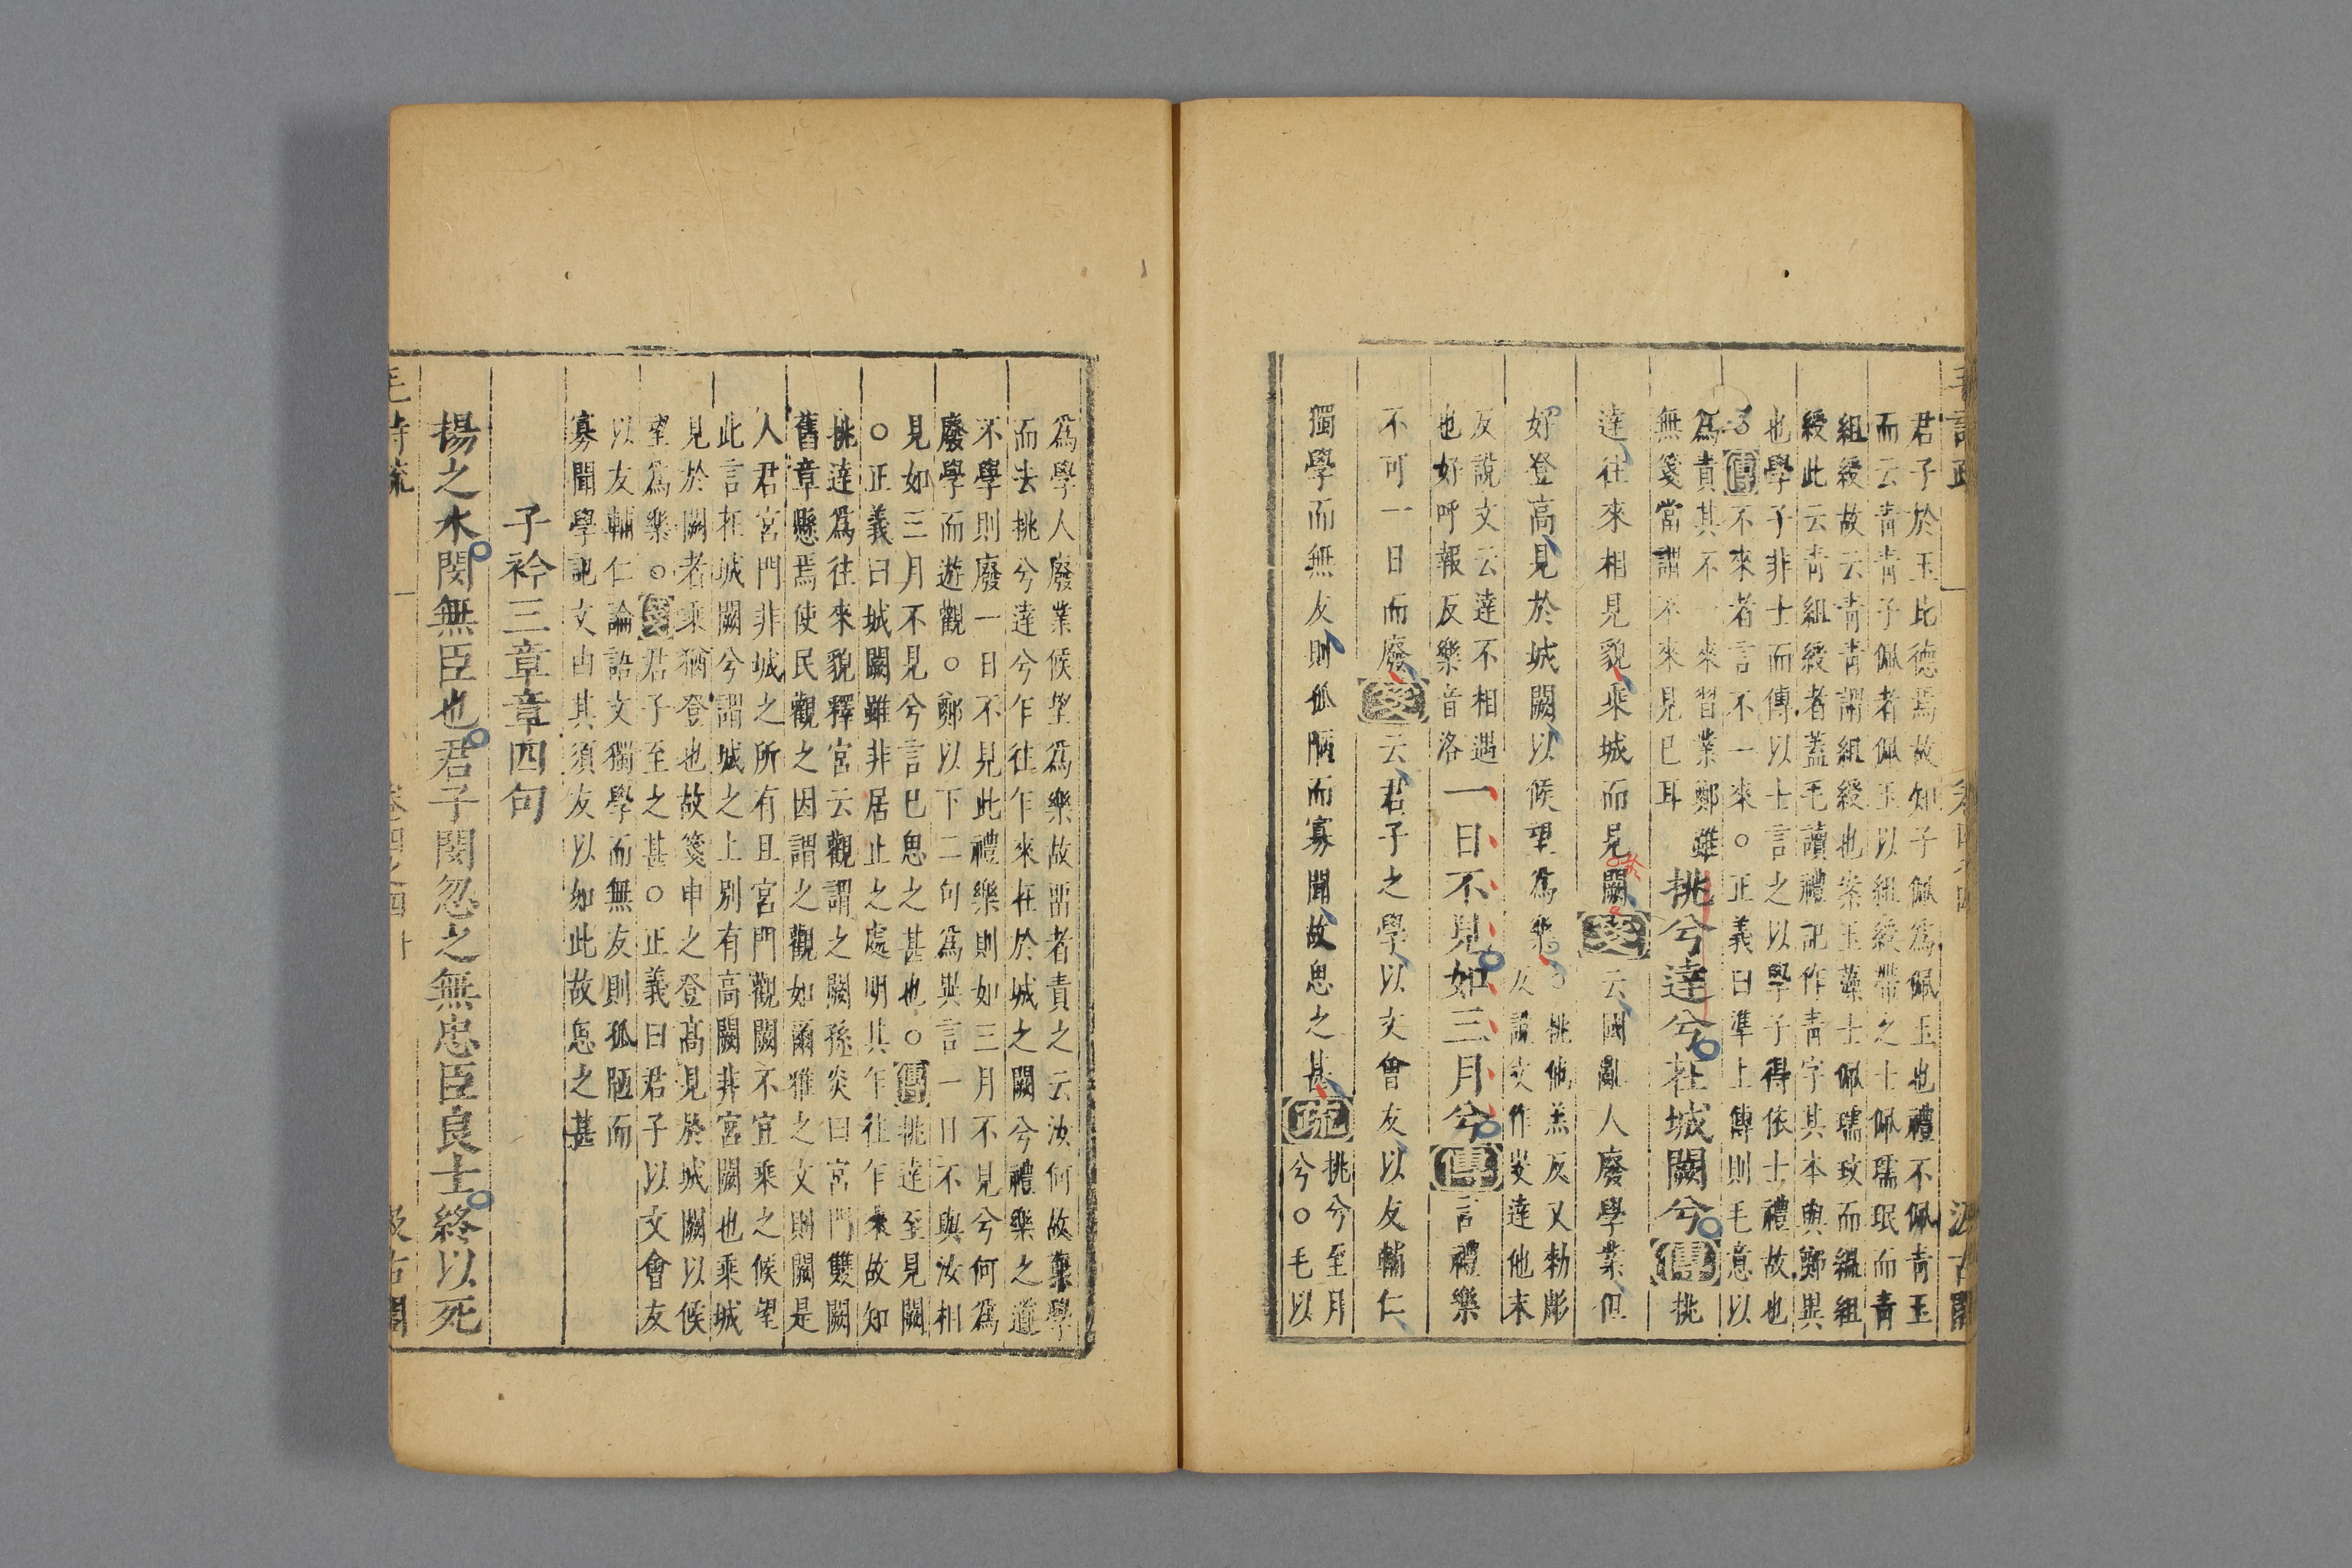 君子於玉比德焉故知子佩爲佩玉也禮不佩青玉
而云青青子佩者佩玉以組綬帶之士佩瓀珉而青
組綬故云青青謂組綬也案玉藻士佩瓀玟而縕組
綬此云青組綬者蓋毛讀禮記作青字其本與鄭異
也學子非士而傳以士言之以學子得依士禮故也
傳不來者言不一來○正義曰準上傳則毛意以
爲責其不一來習業鄭雖
無箋當謂不來見已耳
挑兮達兮在城闕兮傳挑
達往來相見貌乘城而見闕箋云國亂人廢學業但
好登高見於城闕以候望爲樂
○挑他羔反又勑彫
反說文作㚐達他末
反說文云達不相遇
也好呼報反樂音洛
一日不見如三月兮傳言禮樂
不可一日而廢箋云君子之學以文會友以友輔仁
獨學而無友則孤陋而寡聞故思之甚疏
挑兮至月
兮○毛以
爲學人廢業候望爲樂故留者責之云汝何故棄學
而去挑兮達兮乍往乍來在於城之闕兮禮樂之道
不學則廢一日不見此禮樂則如三月不見兮何爲
廢學而遊觀○鄭以下二句爲異言一日不與汝相
見如三月不見兮言已思之甚也○傳挑達至見闕
○正義曰城闕雖非居止之處明其乍往乍來故知
挑達爲往來貌釋宮云觀謂之闕孫炎曰宮門雙闕
舊章懸焉使民觀之因謂之觀如爾雅之文則闕是
人君宮門非城之所有且宮門觀闕不宜乘之候望
此言在城闕兮謂城之上別有高闕非宮闕也乘城
見於闕者乘猶登也故箋申之登高見於城闕以候
望爲樂○箋君子至之甚○正義曰君子以文會友
以友輔仁論語文獨學而無友則孤陋而
寡聞學記文由其須友以如此故思之甚
子衿三章章四句
揚之水閔無臣也君子閔忽之無忠臣良士終以死
毛詩疏
卷四之四
汲古閣